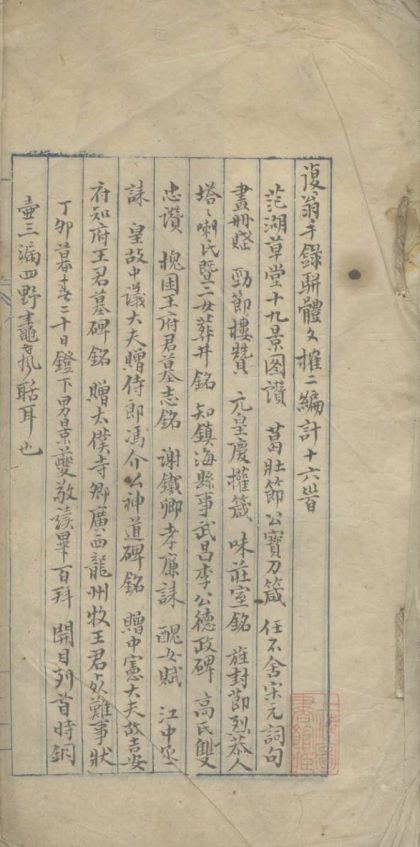 復翁手錄駢體文攉二編計十六首
范湖草堂十九景图讚 葛壯節公寶刀箴 任不舍宋元詞句
畫冊
勁節樓贊 元皇慶攉箴 味莊室銘 旌封節烈恭人
塔〻喇氏暨二女葬井銘 知鎮海縣事武昌李公德政碑 高氏雙
忠讚 槐国王府君墓志銘 謝鐵卿孝廉誄 醜女賦 江中丞
誄 皇故中議大夫贈侍郎馮介公神道碑銘 贈中憲大夫故吉安
府知府王君墓碑銘 贈太僕寺卿廣西龍州牧王君貞難事狀
丁卯暮春二十日鐙下男景夔敬讀畢百拜 開目列首時銅
壷三漏四野
聒耳也